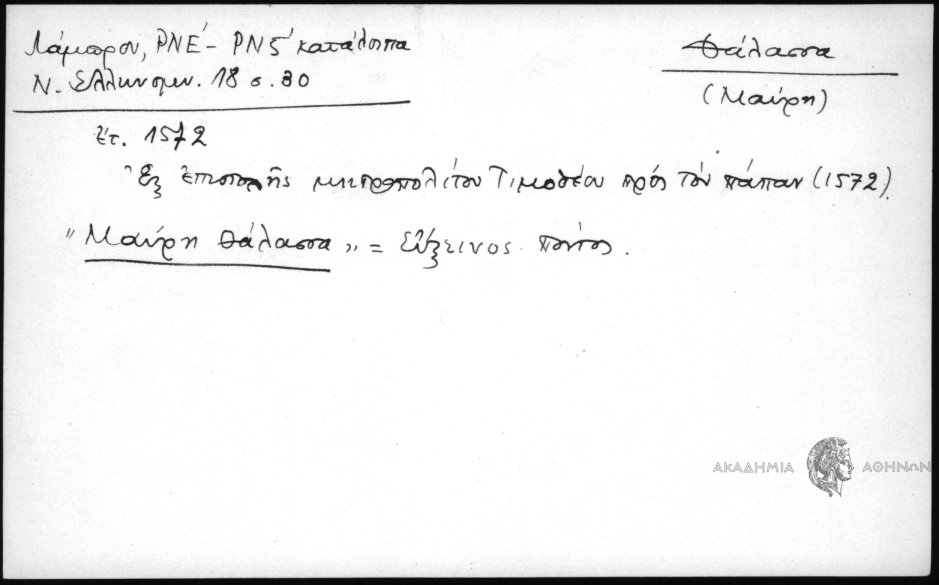 Λάμπρου, ΡΝΕ´- ΡΝϚ´ κατάλοιπα
Ν. Ελληνομν. 18 σ. 30
Θάλασσα
(Μαύρη)
ἔτ. 1572
Ἐξ ἐπιστολῆς μητροπολίτου Τιμοθέου πρός τόν πάπαν (1572).
"Μαύρη θάλασσα" = Εὔξεινος πόντος.
ΑΚΑΔΗΜΙΑ ΑΘΗΝΩΝ